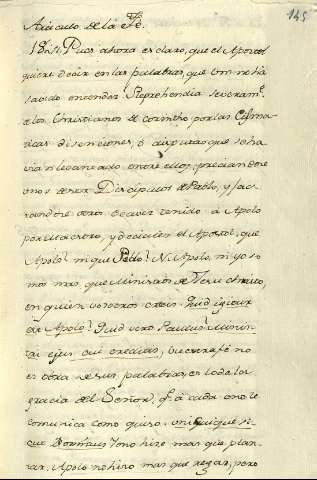 145
Articulo de la Fe.
Pues ahora es claro, que el Apostol
quiere decir en las palabras, que
entender. Reprehendia severam.te
a los Christianos de Corintho por las Cisma-
ticas disenciones, ò disputas que se ha
vian entre ellos, preciandose
unos de ser Discipulos de Pablo, y jac-
tandose otros de aver tenido à Apolo
por Maestro, y diceles el Apostol, que
Apolo? ni que Pablo? Ni Apolo, ni yo so-
mos mas, que Ministros de Jesu Christo,
en quien vosotros creeis. Quid igitur
est Apolo? Quid vero Paulus? Minis-
tri ejus cui credidis, vuestra fé no
es obra de sus palabras, es toda la
gracia del Señor, q.e à cada uno le
comunica como quiso. unicuique si-
cut Dominus Yo no hize mas que plan-
tar, Apolo no hizo mas que regar, pero